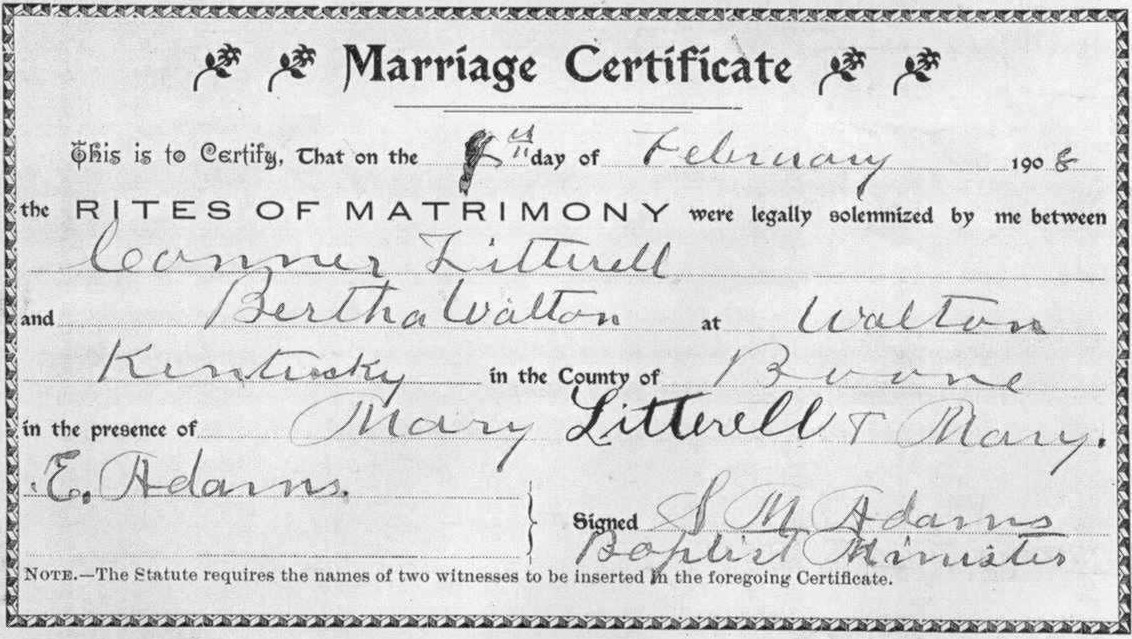 Marriage Certificate
This is to Certify, That on the day of February 1908
the RITES OF MATRIMONY were legally solemnized by me between
Conner Litterell
and Bertha Walton at Walton
Kentusky in the County of Boone
in the presence of Mary Litterell + Mary.
E. Adams.
Signed S M Adams
Baptist Minister
NOTE.—The Statute requires the names of two witnesses to be inserted in the foregoing Certificate.